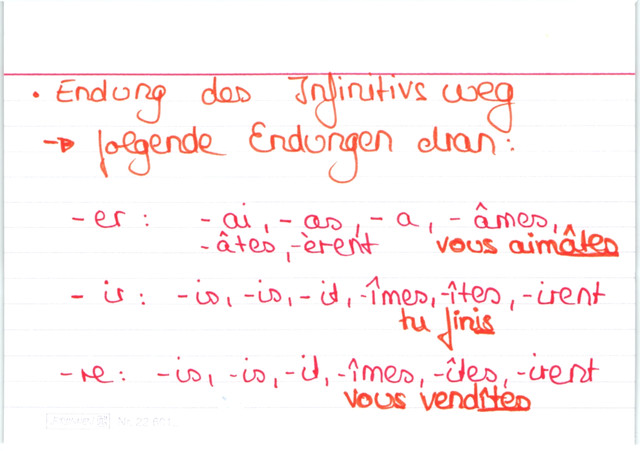 • Endung des Infinitivs weg
→ folgende Endungen dran:
-er: -ai, -as, -a, -âmes,
-âtes, -èrent vous aimâtes
-ir: -is, -is, -it, -îmes, -îtes, -irent
tu finis
-re: -is, -is, -it, -îmes, -îtes, -irent
vous vendîtes